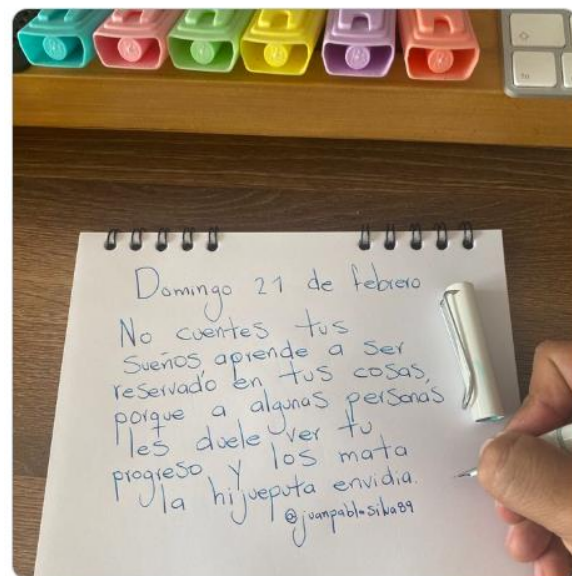 Domingo 21 de febrero
No cuentes tus
sueños, aprende a ser
reservado en tus cosas,
porque a algunas personas
les duele ver tu
progreso y los mata
la hijueputa envidia.
@juanpablosilva89